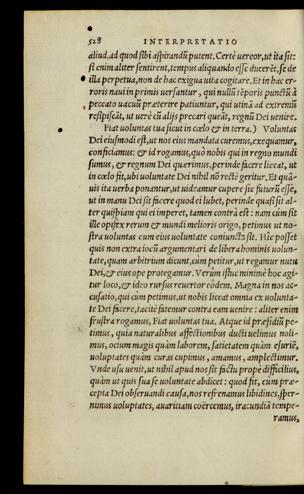 528 INTERPRETATIO
aliud, ad quod sibi aspirandũ putent. Certè uereor, ut ita sit:
si enim aliter sentirent, tempus aliquando esse ducerẽt, se de
illa perpetua, non de hac exigua uita cogitare. Et in hac er-
rore naui in primis uersantur, qui nullũ tẽporis punctũ à
peccato uacuũ præterire patiuntur, qui utinã ad extremũ
resipiscãt, ut uerè cũ alijs precari queãt, regnũ Dei uenire.
Fiat uoluntas tua sicut in cœlo & in terra.) Voluntas
Dei eiusmodi est, ut nos eius mandata curemus, exequamur,
conficiamus: & id rogamus, quò nobis qui in regno mundi
sumus, & regnum Dei quærimus, perinde facere liceat, ut
in cœlo fit, ubi uoluntate Dei nihil nõ rectè geritur. Et quã-
uis ita uerba ponantur, ut uideamur cupere sic futurũ esse,
ut in manu Dei sit facere quod ei lubet, perinde quasi sit ali-
ter quispiam qui ei imperet, tamen contrà est: nam cùm sit
ille opifex rerum & mundi melioris origo, petimus ut no-
stra uoluntas cum eius uoluntate coniuncta sit. Hic posset
quis non extra locũ argumentari de libera hominis uolun-
tate, quam arbitrium dicunt, cùm petitur, ut regamur nutu
Dei, & eius ope protegamur. Verùm istuc minimè hoc agi-
tur loco, & ideo rursus reuertor eòdem. Magna in nos ac-
cusatio, qui cùm petimus, ut nobis liceat omnia ex uolunta-
te Dei facere, tacitè fatemur contra eam uenire: aliter enim
frustra rogamus, Fiat uoluntas tua. Atque id præsidiũ pe-
timus, quia naturalibus affectionibus ducti uelimus noli-
mus, ocium magis quàm laborem, satietatem quàm esuriẽ,
uoluptates quàm curas cupimus, amamus, amplectimur.
Vnde usu uenit, ut nihil apud nos sit factu propè difficilius,
quàm ut quis sua se uoluntate abdicet: quod fit, cùm præ-
cepta Dei obseruandi causa, nos refrenamus libidines, sper-
nimus uoluptates, auaritiam coërcemus, iracundiã tempe-
ramus,